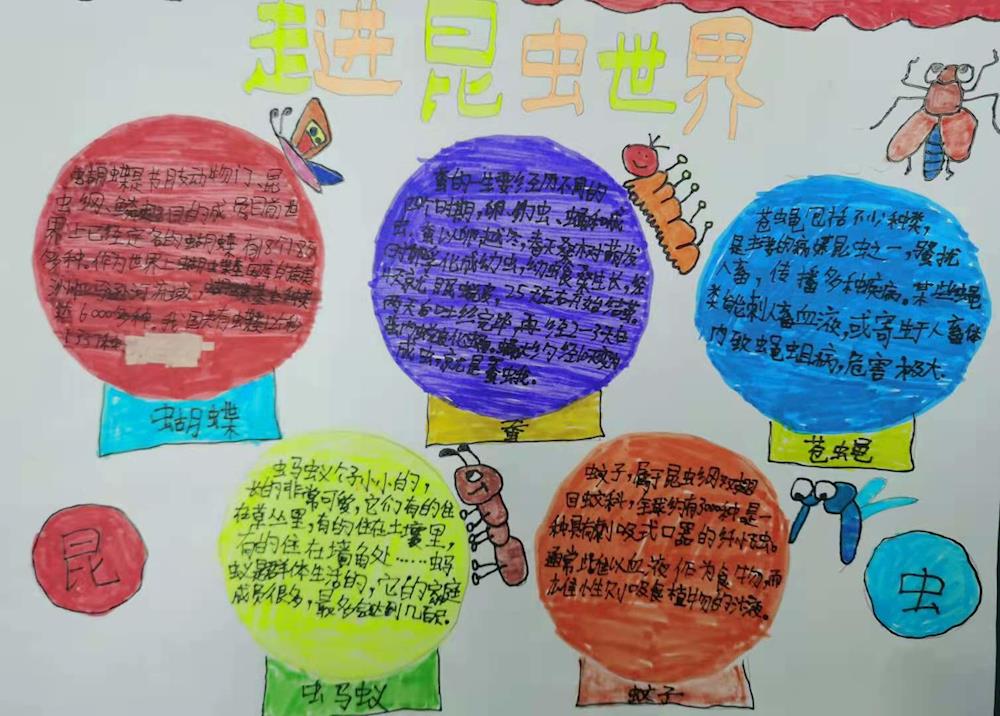 走进昆虫世界
蝴蝶是节肢动物门、昆
虫纲、鳞翅目的成员目前世
界上已经定名的蝴蝶有18门
多种。作为世界上蝴蝶
流域,
近6000多种,我国共有蝴蝶
蝴蝶
蚕的一生要经历不同的
四个时期,卵、幼虫、蛹和成
虫,蚕以卵越冬,春天
化成幼虫,幼虫食桑生长,经
25天左右开始结茧。
两天吐丝完毕,再经2~3天在
茧内蜕皮化蛹。
成虫,就是蚕蛾。
蚕
苍蝇包括不少种类,
是主要的病媒昆虫之一,骚扰
人畜,传播多种疾病。某些蝇
类能刺畜血液,或寄生于人畜体
内致蝇蛆病,危害极大.
苍蝇
蚂蚁个子小小的,
长的非常可爱,它们有的住
在草丛里,有的住在土壤里,
有的住在墙角处……蚂
蚁是群体生活的,它的家庭
成员很多,最多会达到几百只。
蚂蚁
蚊子,属于昆虫纲双翅
目蚊科,全球约有3000种,是一
种具有刺吸式口器的纤小昆虫。
通常雌性以血液作为食物,而
雄性则吸食植物的汁液。
蚊子
昆
虫